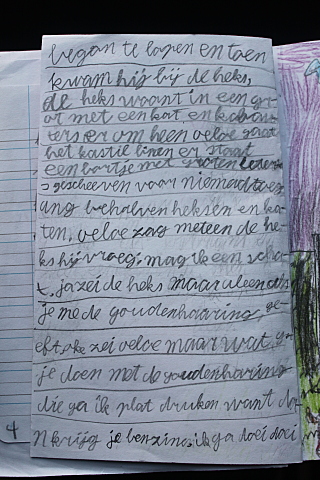 began te lopen en toen
kwam hij bij de heks,
de heks woont in een gro
ot met een kat en
ters er om heen veloe gaat
het kastil binen er staat
een bortje met groten leter
s gescheeven voor niemand
ang behalven heksen en ka
ten. veloe zag meteen de he
ks hij vroeg: mag ik een scha
t, ja zei de heks maar aleen als
je me de goudenhaaring, ge
eft, oke zei veloe maar wat ga
je doen met de goudenharing
die ga ik plat druken want da
n krijg je benzine, ik ga doei doei
4